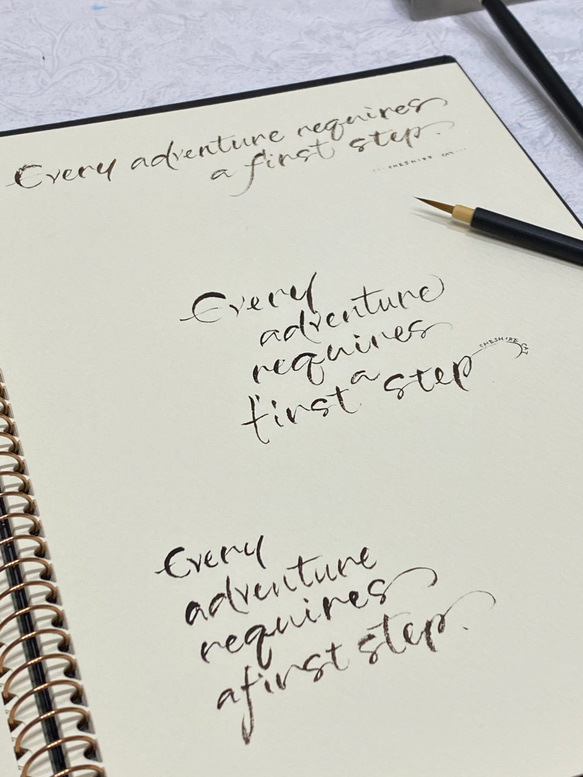 Every adventure requires
a first step.
THESHIRE CAT
Every
adventure
requires
a
first step
THESHIRE
Every
adventure
requires
a first step.